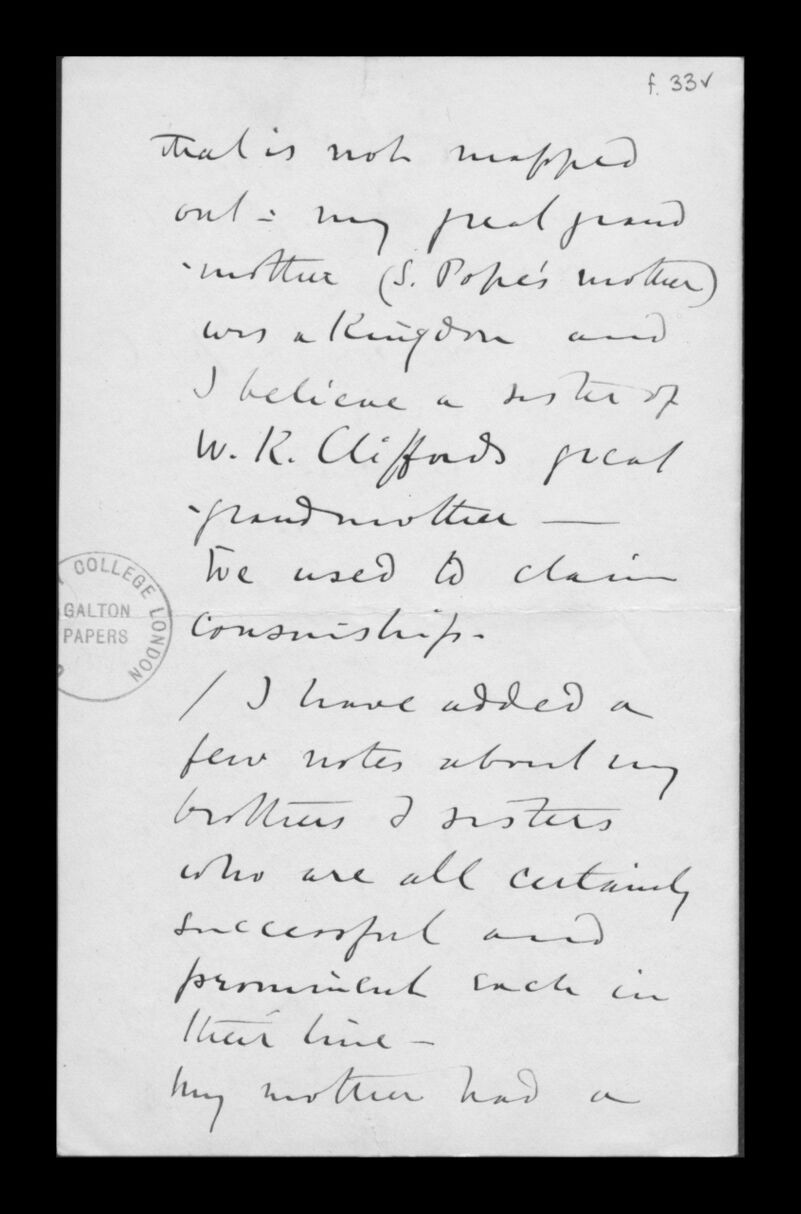 f. 33v
that is not mapped
out - my great grand
-mother (S. Pope's mother)
was a Kingdon and
I believe a sister of
W. K. Cliffords great
-grandmother —
We used to claim
cousinship.
/ I have added a
few notes about my
brothers & sisters
who are all certainly
successful and
prominent each in
their line -
My mother had a
COLLEGE LONDON
GALTON
PAPERS